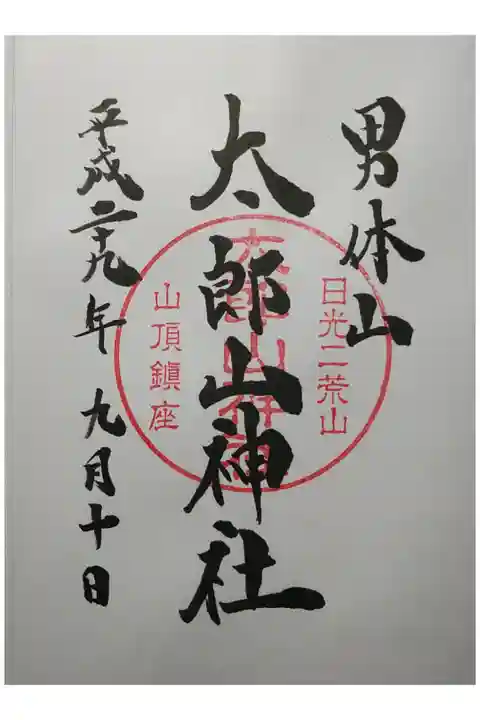 男体山
日光二荒山
太郎山神社
山頂鎭座
平成二十九年 九月十日